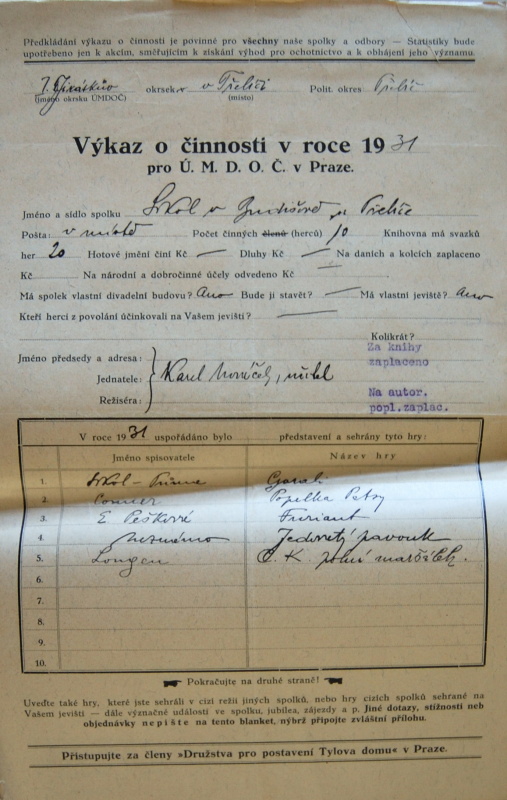 Předkládání výkazu o činnosti je povinné pro všechny naše spolky a odbory — Statistiky bude
upotřebeno jen k akcím, směřujícím k získání výhod pro ochotnictvo a k obhájení jeho významu.
okrsek v Třebíči Polit. okres Třebíč
(jméno okrsku ÚMDOČ) (místo)
Výkaz o činnosti v roce 1931
pro Ú. M. D. O. Č. v Praze.
Jméno a sídlo spolku Sokol v u Třebíče
Pošta: v místě Počet činných členů (herců) 10 Knihovna má svazků
her 20 Hotové jmění činí Kč — Dluhy Kč — Na daních a kolcích zaplaceno
Kč — Na národní a dobročinné účely odvedeno Kč —
Má spolek vlastní divadelní budovu? Ano Bude ji stavět? — Má vlastní jeviště? Ano
Kteří herci z povolání účinkovali na Vašem jevišti? —
Kolikrát?
Za knihy
zaplaceno
Jméno předsedy a adresa:
Jednatele: Karel
Režiséra:
Na autor.
popl.zaplac.
V roce 1931 uspořádáno bylo představení a sehrány tyto hry:
Jméno spisovatele Název hry
1. Sokol - Tůma Gorali
2. Popelka Patsy
3. E. Pešková Furiant
4. neznámo Jedovatý pavouk
5. Longen C. K. polní maršálek.
6.
7.
8.
9.
10.
Pokračujte na druhé straně!
Uveďte také hry, které jste sehráli v cizí režii jiných spolků, nebo hry cizích spolků sehrané na
Vašem jevišti — dále význačné události ve spolku, jubilea, zájezdy a p. Jiné dotazy, stížnosti neb
objednávky nepište na tento blanket, nýbrž připojte zvláštní přílohu.
Přistupujte za členy »Družstva pro postavení Tylova domu« v Praze.